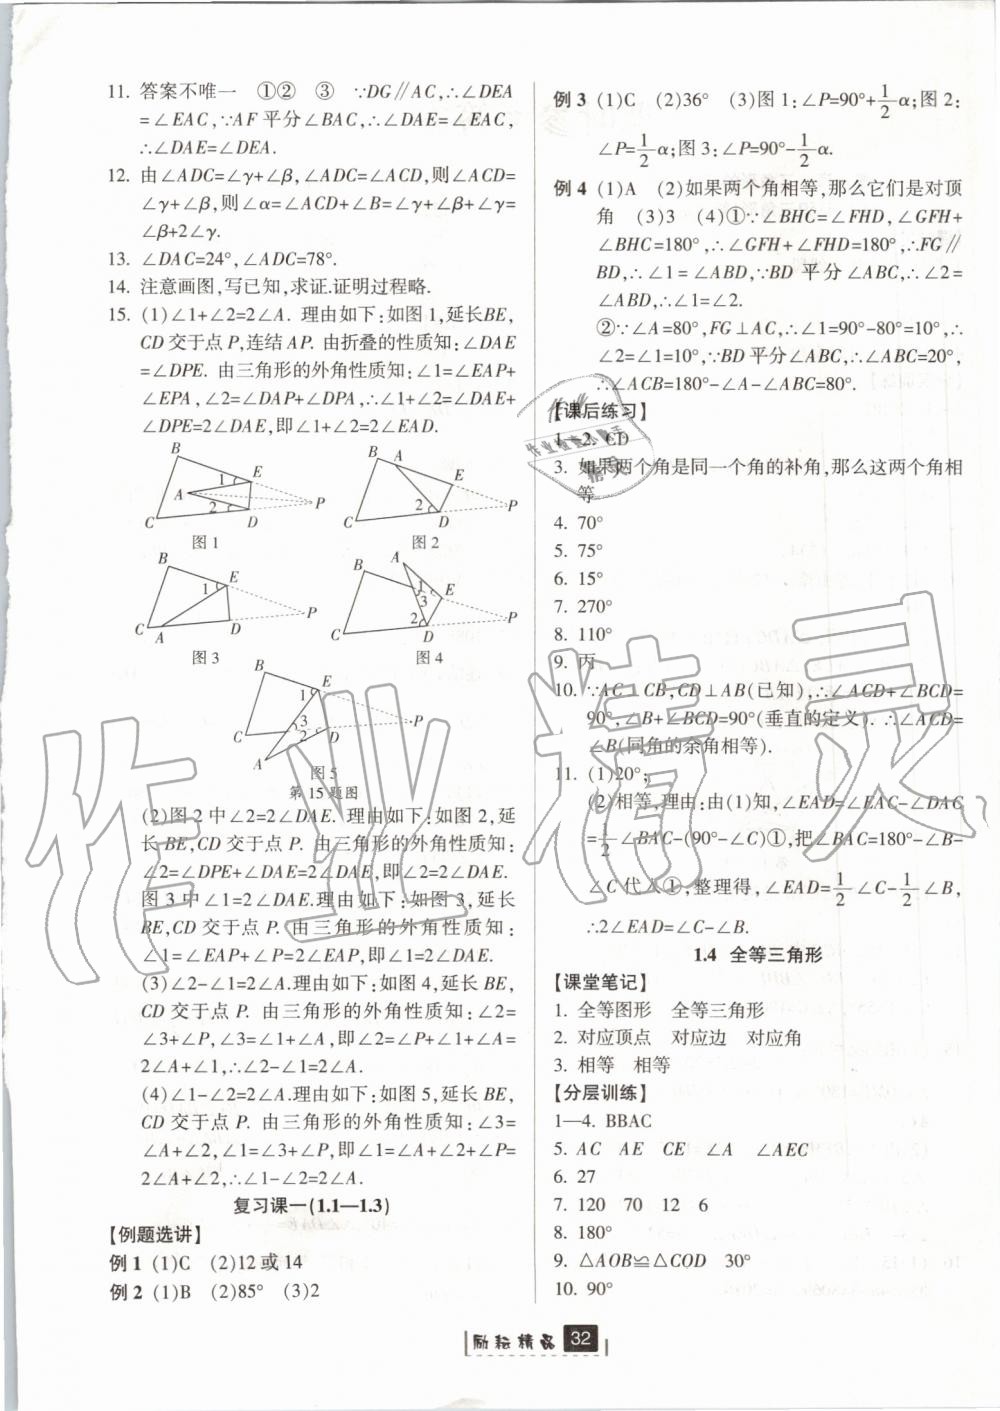 11. 答案不唯一　①②　③　∵DG∥AC,∴∠DEA
=∠EAC,∵AF平分∠BAC,∴∠DAE=∠EAC,
∴∠DAE=∠DEA.
12. 由∠ADC=∠γ+∠β,∠ADC=∠ACD,则∠ACD=
∠γ+∠β,则∠α=∠ACD+∠B=∠γ+∠β+∠γ=
∠β+2∠γ.
13. ∠DAC=24°,∠ADC=78°.
14. 注意画图,写已知,求证.证明过程略.
15. (1)∠1+∠2=2∠A. 理由如下:如图1,延长BE,
CD交于点P,连结AP. 由折叠的性质知:∠DAE
=∠DPE. 由三角形的外角性质知:∠1=∠EAP+
∠EPA,∠2=∠DAP+∠DPA,∴∠1+∠2=∠DAE+
∠DPE=2∠DAE,即∠1+∠2=2∠EAD.
B E A 1 2 P C D
图1
B A E 2 P C D
图2
B E 1 P C A D
图3
A B 1 E 3 2 P C D
图4
B E 1 3 2 P C D A
图5
第15题图
(2)图2中∠2=2∠DAE. 理由如下:如图2,延
长BE,CD交于点P. 由三角形的外角性质知:
∠2=∠DPE+∠DAE=2∠DAE,即∠2=2∠DAE.
图3中∠1=2∠DAE.理由如下:如图3,延长
BE,CD交于点P. 由三角形的外角性质知:
∠1=∠EAP+∠P=2∠EAP,即∠1=2∠DAE.
(3)∠2-∠1=2∠A.理由如下:如图4,延长BE,
CD交于点P. 由三角形的外角性质知:∠2=
∠3+∠P,∠3=∠1+∠A,即∠2=∠P+∠1+∠A=
2∠A+∠1,∴∠2-∠1=2∠A.
(4)∠1-∠2=2∠A.理由如下:如图5,延长BE,
CD交于点P. 由三角形的外角性质知:∠3=
∠A+∠2,∠1=∠3+∠P,即∠1=∠A+∠2+∠P=
2∠A+∠2,∴∠1-∠2=2∠A.
复习课一(1.1—1.3)
【例题选讲】
例1 (1)C　(2)12或14
例2 (1)B　(2)85°　(3)2
例3 (1)C　(2)36°　(3)图1:∠P=90°+1/2α;图2:
∠P=1/2α;图3:∠P=90°-1/2α.
例4 (1)A　(2)如果两个角相等,那么它们是对顶
角　(3)3　(4)①∵∠BHC=∠FHD,∠GFH+
∠BHC=180°,∴∠GFH+∠FHD=180°,∴FG∥
BD,∴∠1=∠ABD,∵BD平分∠ABC,∴∠2=
∠ABD,∴∠1=∠2.
②∵∠A=80°,FG⊥AC,∴∠1=90°-80°=10°,∴
∠2=∠1=10°,∵BD平分∠ABC,∴∠ABC=20°,
∴∠ACB=180°-∠A-∠ABC=80°.
【课后练习】
1、2. CD
3. 如果两个角是同一个角的补角,那么这两个角相
等
4. 70°
5. 75°
6. 15°
7. 270°
8. 110°
9. 丙
10. ∵AC⊥CB,CD⊥AB(已知),∴∠ACD+∠BCD=
90°,∠B+∠BCD=90°(垂直的定义). ∴∠ACD=
∠B(同角的余角相等).
11. (1)20°;
(2)相等,理由:由(1)知,∠EAD=∠EAC-∠DAC
=1/2∠BAC-(90°-∠C)①,把∠BAC=180°-∠B-
∠C代入①,整理得,∠EAD=1/2∠C-1/2∠B,
∴2∠EAD=∠C-∠B.
1.4　全等三角形
【课堂笔记】
1. 全等图形　全等三角形
2. 对应顶点　对应边　对应角
3. 相等　相等
【分层训练】
1—4. BBAC
5. AC　AE　CE　∠A　∠AEC
6. 27
7. 120　70　12　6
8. 180°
9. △AOB≌△COD　30°
10. 90°
励耘精品 32
作业精灵